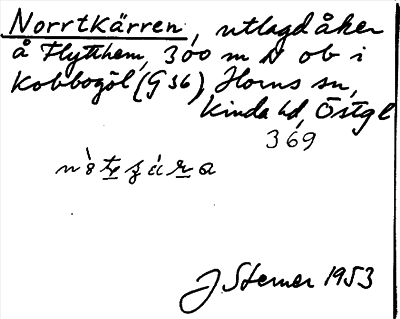 Norrtkärren, utlagd åker
å Flytthem, 300 m N ob i
Kobbogöl (G36), Horns sn,
Kinda hd, Östgl
369
J Sterner 1953